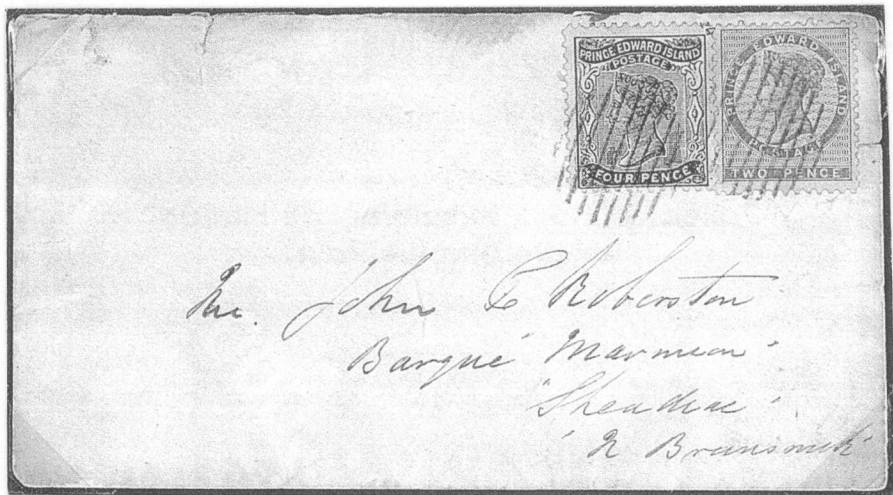 PRINCE EDWARD ISLAND
POSTAGE
FOUR PENCE
PRINCE EDWARD ISLAND
POSTAGE
TWO PENCE
Mr. John Roberston
Barque "Marmion"
"Sheadiac"
"N Brunswick"